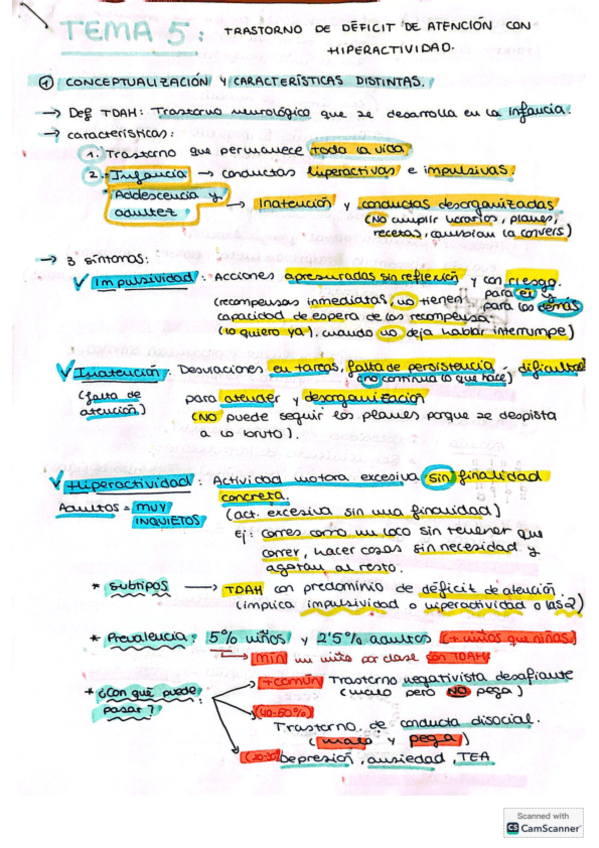 TEMA 5: TRASTORNO DE DÉFICIT DE ATENCIÓN CON
HIPERACTIVIDAD.
① CONCEPTUALIZACIÓN Y CARACTERÍSTICAS DISTINTAS.
→ Def TDAH: Trastorno neurológico que se desarrolla en la infancia.
→ características:
1. Trastorno que permanece toda la vida
2. Infancia → conductas hiperactivas e impulsivas.
* Adolescencia y
adultez. → Inatención y conductas desorganizadas
(No cumplir horarios, planes,
recetas, cambian la convers)
→ 3 síntomas:
✓ Impulsividad: Acciones apresuradas sin reflexión y con riesgo.
para él y
para los demás
(recompensas inmediatas, no tienen
capacidad de espera de las recompensa.
(lo quiero ya), cuando no deja hablar interrumpe)
✓ Inatención: Desviaciones en tareas, falta de persistencia, dificultad
(no continua lo que hace)
(falta de
atención)
para atender y desorganización
(NO puede seguir los planes porque se despista
a lo bruto).
✓ Hiperactividad: Actividad motora excesiva sin finalidad
concreta.
Adultos = MUY
INQUIETOS
(act. excesiva sin una finalidad)
Ej: corres como un loco sin tener que
correr, hacer cosas sin necesidad y
agotan al resto.
* Subtipos → TDAH con predominio de déficit de atención.
(implica impulsividad o hiperactividad o las 2)
* Prevalencia: 5% niños y 2'5% adultos (+ niños que niñas)
→ min un niño por clase con TDAH
* ¿Con qué puede
pasar?
→ + común Trastorno negativista desafiante
(malo pero NO pega)
(40-60%)
Trastorno de conducta disocial.
(malo y pega)
Depresión, ansiedad, TEA
Scanned with
CS CamScanner